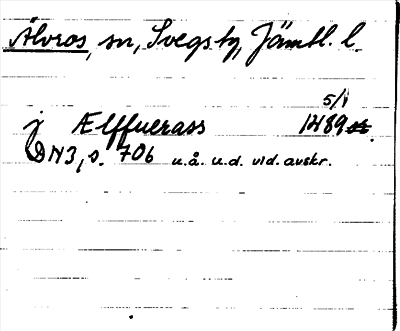 Älvros, sn, Svegs tg, Jämtl. l.
5/1
j Ælffuerass 1489
DN3, s. 706 u.å. u.d. vid. avskr.